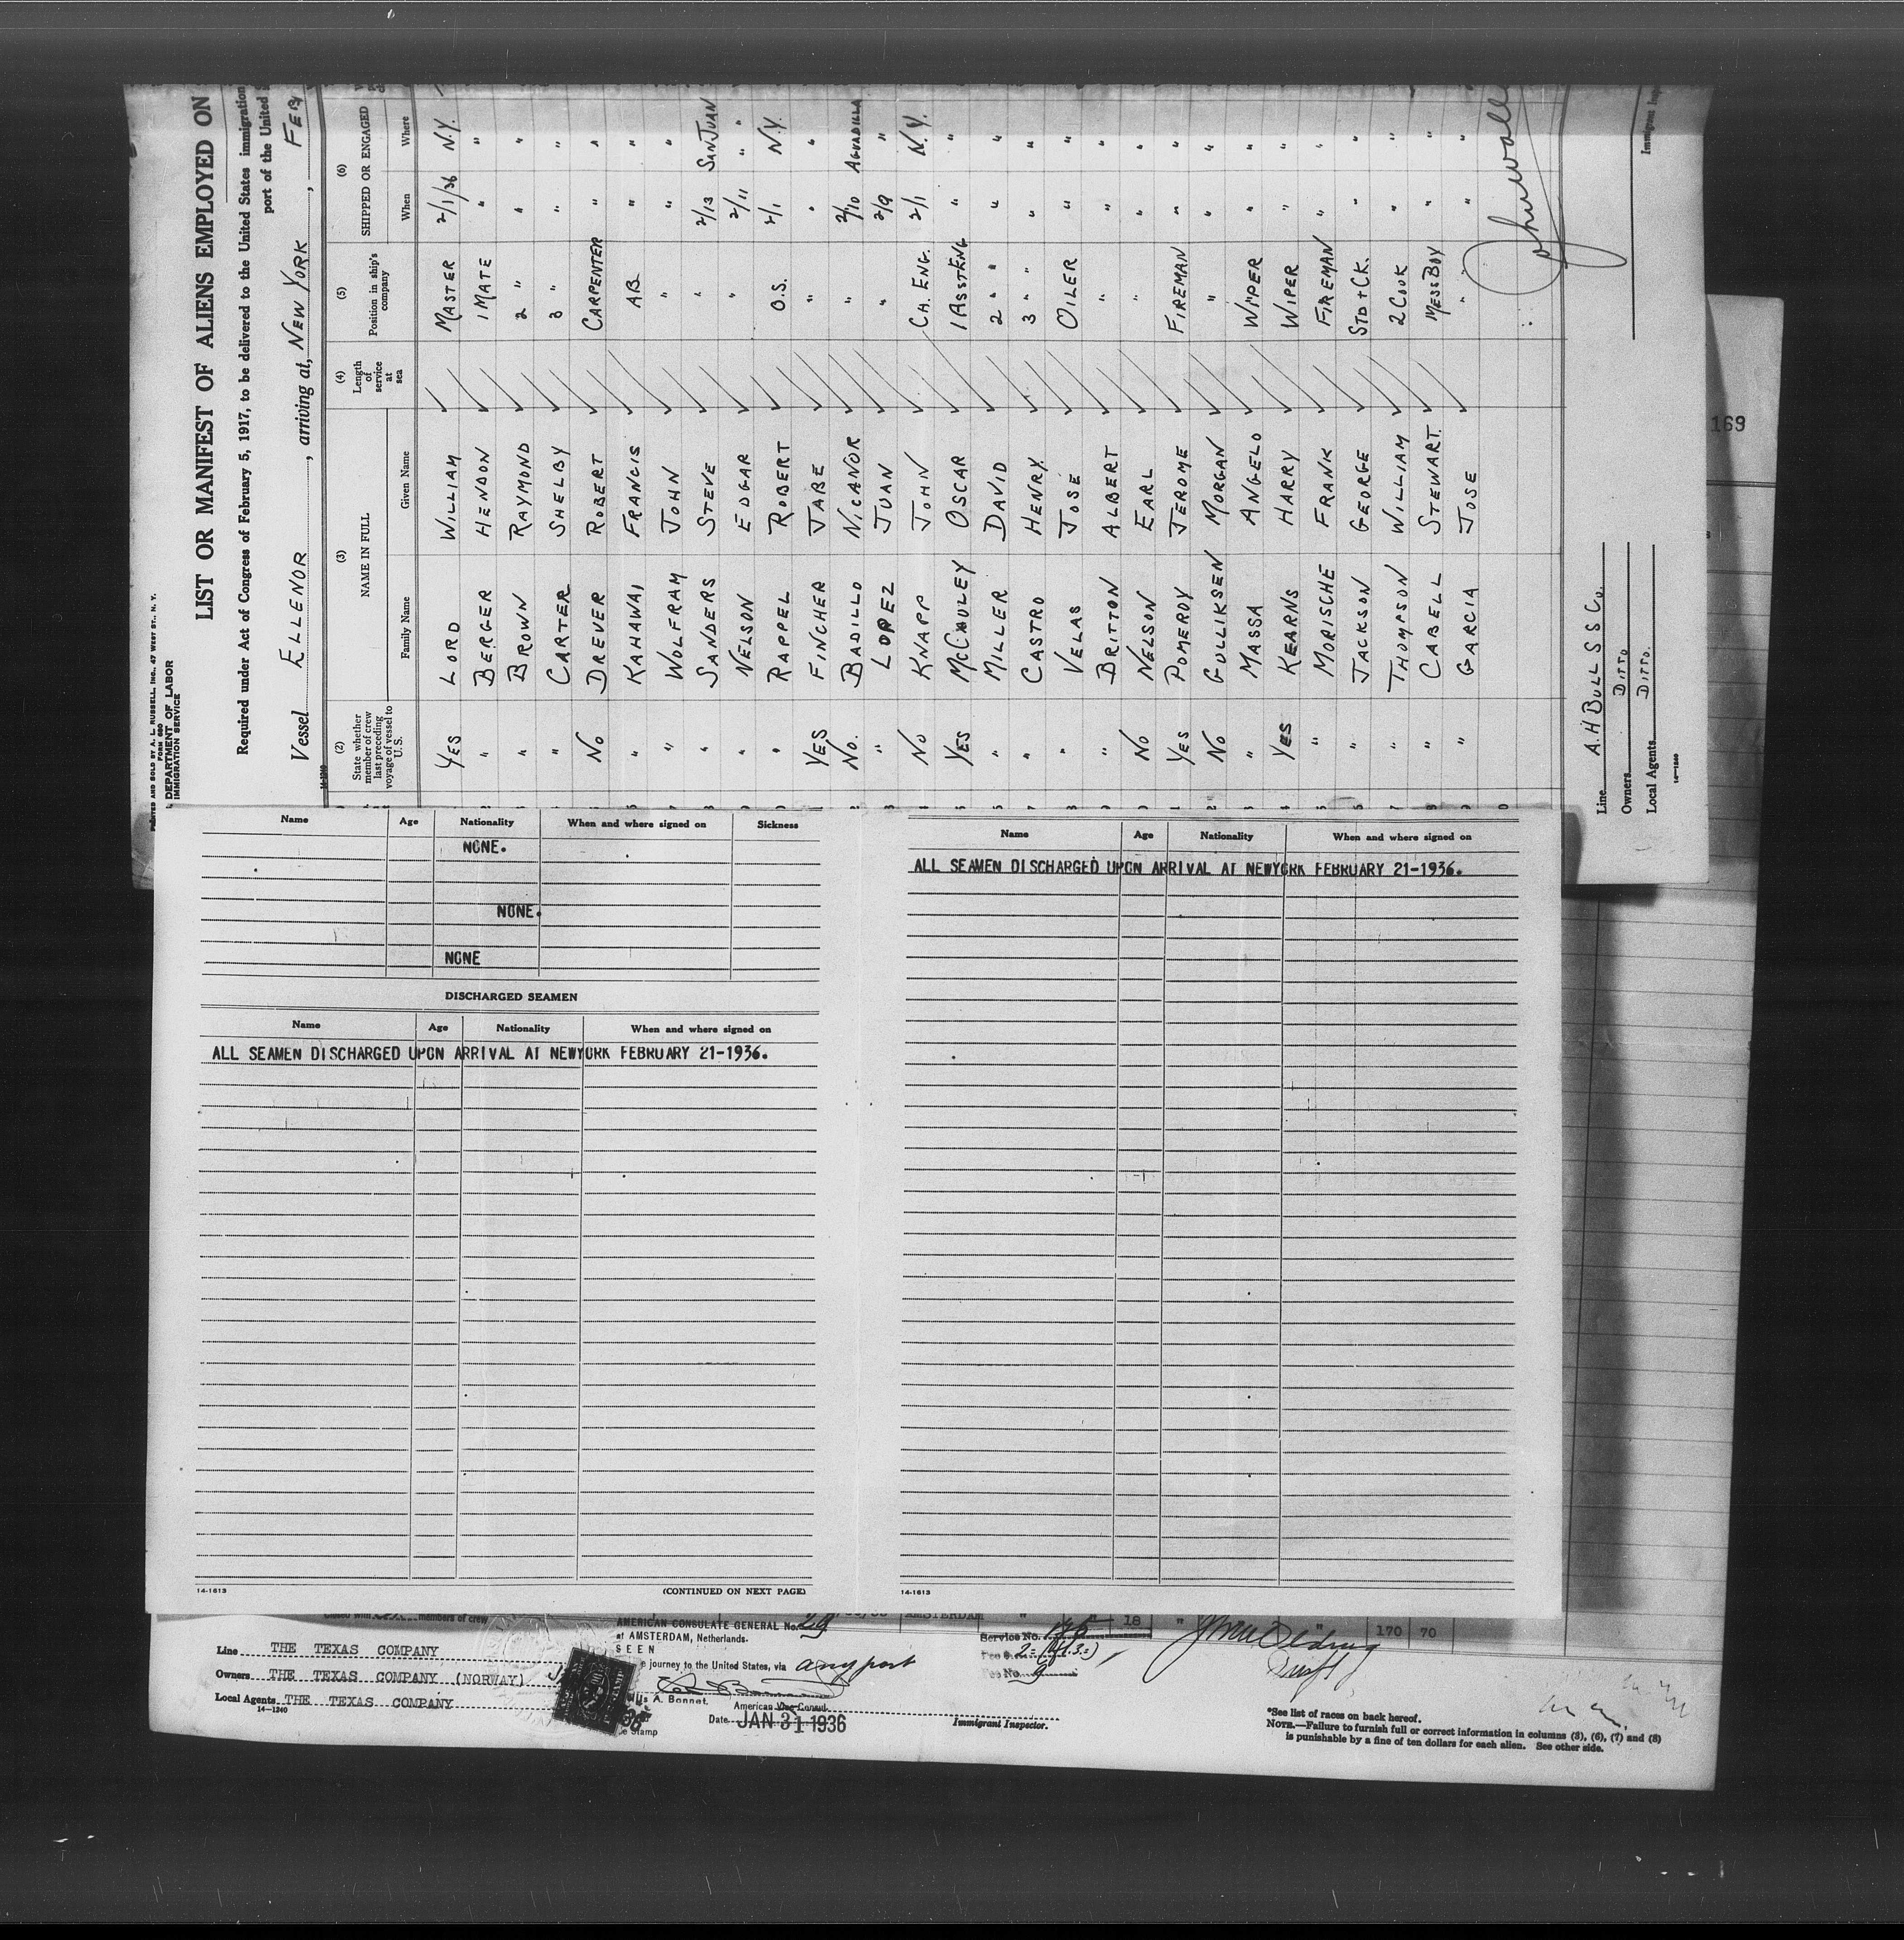 PRINTED AND SOLD BY A. L. RUSSELL, INC., 47 WEST ST., N. Y.
FORM 680
DEPARTMENT OF LABOR
IMMIGRATION SERVICE
LIST OR MANIFEST OF ALIENS EMPLOYED ON
Required under Act of Congress of February 5, 1917, to be delivered to the United States immigration
port of the United
Vessel ELLENOR, arriving at, NEW YORK, FEB
14-1240
(2) (3) (4) (5) (6)
State whether member of crew last preceding voyage of vessel to U. S. NAME IN FULL Length of service at sea Position in ship's company SHIPPED OR ENGAGED
Family Name Given Name When Where
YES LORD WILLIAM ✓ MASTER 2/1/36 N.Y.
" BERGER HENDON ✓ 1 MATE " "
" BROWN RAYMOND ✓ 2 " " "
" CARTER SHELBY ✓ 3 " " "
No DREVER ROBERT ✓ CARPENTER " "
" KAHAWAI FRANCIS ✓ AB " "
" WOLFRAM JOHN ✓ " " "
" SANDERS STEVE ✓ " 2/13 SAN JUAN
" NELSON EDGAR ✓ " 2/11 "
" RAPPEL ROBERT ✓ O.S. 2/1 N.Y.
YES FINCHER JABE ✓ " " "
No. BADILLO NICANOR ✓ " 2/10 AGUADILLA
" LOPEZ JUAN ✓ " 2/9 "
No KNAPP JOHN ✓ CH. ENG. 2/1 N.Y.
YES McCAULEY OSCAR ✓ 1 ASST ENG " "
" MILLER DAVID ✓ 2 " " " "
" CASTRO HENRY ✓ 3 " " "
" VELAS JOSE ✓ OILER " "
" BRITTON ALBERT ✓ " " "
No NELSON EARL ✓ " " "
YES POMEROY JEROME ✓ FIREMAN " "
No GULLIKSEN MORGAN ✓ " " "
" MASSA ANGELO ✓ WIPER " "
YES KEARNS HARRY ✓ WIPER " "
" MORISCHE FRANK ✓ FIREMAN " "
" JACKSON GEORGE ✓ STD + CK. " "
" THOMPSON WILLIAM ✓ 2 COOK " "
" CABELL STEWART. ✓ MESSBOY " "
" GARCIA JOSE ✓ " " "
Line A.H BULL S S Co.
Owners DITTO
Local Agents DITTO.
14-1240
Immigrant
169
Name Age Nationality When and where signed on Sickness
NONE.
NONE.
NONE
DISCHARGED SEAMEN
Name Age Nationality When and where signed on
ALL SEAMEN DISCHARGED UPON ARRIVAL AT NEWYORK FEBRUARY 21-1936.
14-1613
(CONTINUED ON NEXT PAGE)
Name Age Nationality When and where signed on
ALL SEAMEN DISCHARGED UPON ARRIVAL AT NEWYORK FEBRUARY 21-1936.
14-1613
members of crew
AMSTERDAM " " 18 " " 170 70
Line THE TEXAS COMPANY
Owners THE TEXAS COMPANY (NORWAY)
Local Agents THE TEXAS COMPANY
14-1240
AMERICAN CONSULATE GENERAL No. 29
at AMSTERDAM, Netherlands.
SEEN
journey to the United States, via any port
A. Bonnet.
American Vice Consul.
Date JAN 31 1936
Stamp
Service No. 195
Fee No. 9
Immigrant Inspector.
*See list of races on back hereof.
NOTE.—Failure to furnish full or correct information in columns (3), (6), (7) and (8)
is punishable by a fine of ten dollars for each alien. See other side.